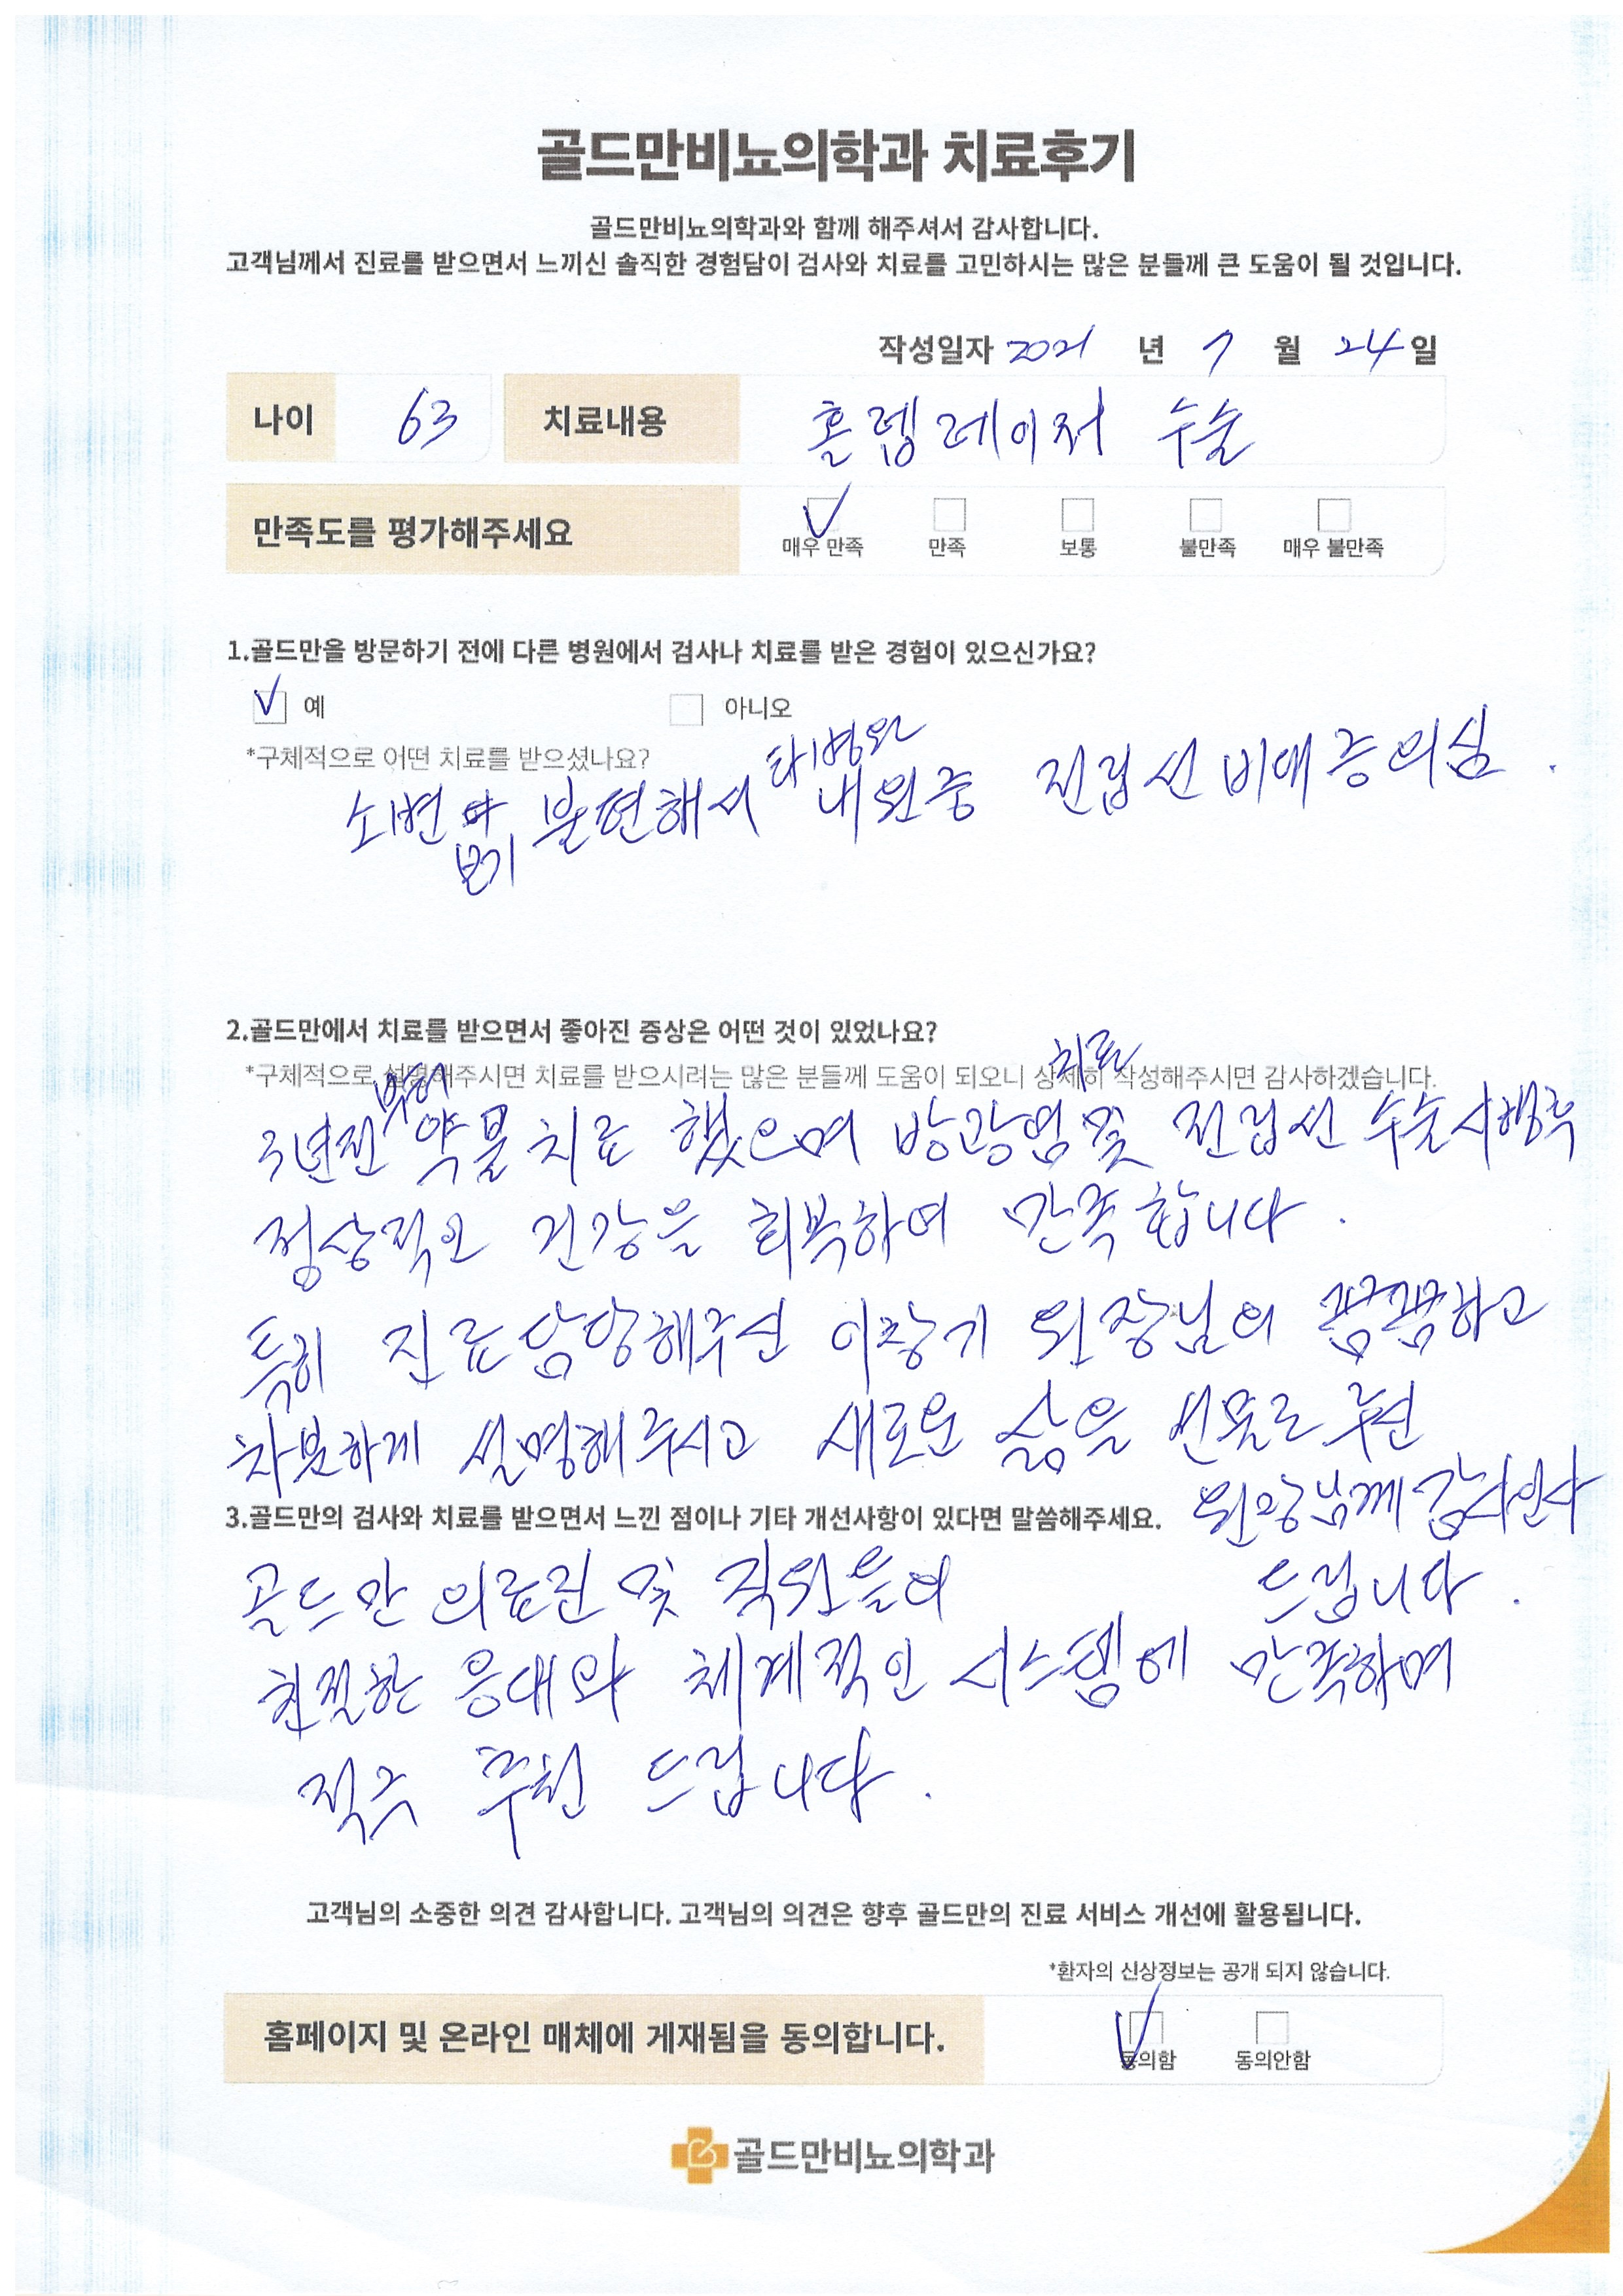 골드만비뇨의학과 치료후기
골드만비뇨의학과와 함께 해주셔서 감사합니다.
고객님께서 진료를 받으면서 느끼신 솔직한 경험담이 검사와 치료를 고민하시는 많은 분들께 큰 도움이 될 것입니다.
작성일자 2021 년 7 월 24 일
나이 63 치료내용 홀렙레이저 수술
만족도를 평가해주세요
매우 만족 만족 보통 불만족 매우 불만족
1.골드만을 방문하기 전에 다른 병원에서 검사나 치료를 받은 경험이 있으신가요?
예 아니오
*구체적으로 어떤 치료를 받으셨나요?
타병원
소변 불편해서 내원중 전립선비대증의심.
보기
2.골드만에서 치료를 받으면서 좋아진 증상은 어떤 것이 있었나요?
치료
*구체적으로 설명해주시면 치료를 받으시려는 많은 분들께 도움이 되오니 상세히 작성해주시면 감사하겠습니다.
3년전 약물치료 했으며 방광염및 전립선 수술시행후
정상적인 건강을 회복하여 만족합니다.
특히 진료담당해주신 이창기 원장님의 꼼꼼하고
차분하게 설명해주시고 새로운 삶을 선물로 주신
원장님께 감사인사
3.골드만의 검사와 치료를 받으면서 느낀 점이나 기타 개선사항이 있다면 말씀해주세요.
드립니다.
골드만 의료진 및 직원들의
친절한 응대와 체계적인 시스템에 만족하며
적극 추천 드립니다.
고객님의 소중한 의견 감사합니다. 고객님의 의견은 향후 골드만의 진료 서비스 개선에 활용됩니다.
*환자의 신상정보는 공개 되지 않습니다.
홈페이지 및 온라인 매체에 게재됨을 동의합니다.
동의함 동의안함
골드만비뇨의학과